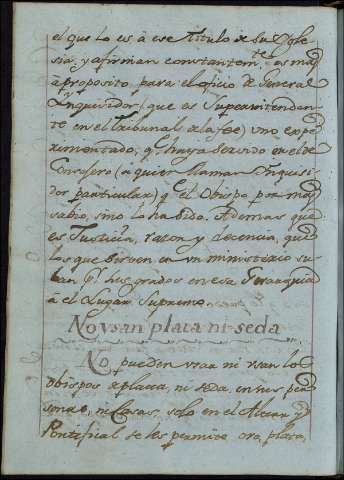 el que lo es à ese Titulo de su Ygle
sia, y afirman constantem.te es mas
àproposito, para el oficio de General
Ynquisidor (que es Superintenden
te en el Tribunal de la fee) uno expe
rimentado, q.e haya servido en el de
Consejero (à quien llaman Ynquisi
dor particular) q.e el Obispo por mas
sabio, sino lo ha sido. Ademas que
es Justicia, razon y decencia, que
los que sirven en un ministerio su
ban p.r los grados en esa Gerarquia
à el Lugar Supremo.
No usan plata ni seda
No pueden usar ni usan los
obispos de plata, ni seda, en sus per
sonas, ni Casas, solo en el Altar y
Pontifical se les permite oro, plata,